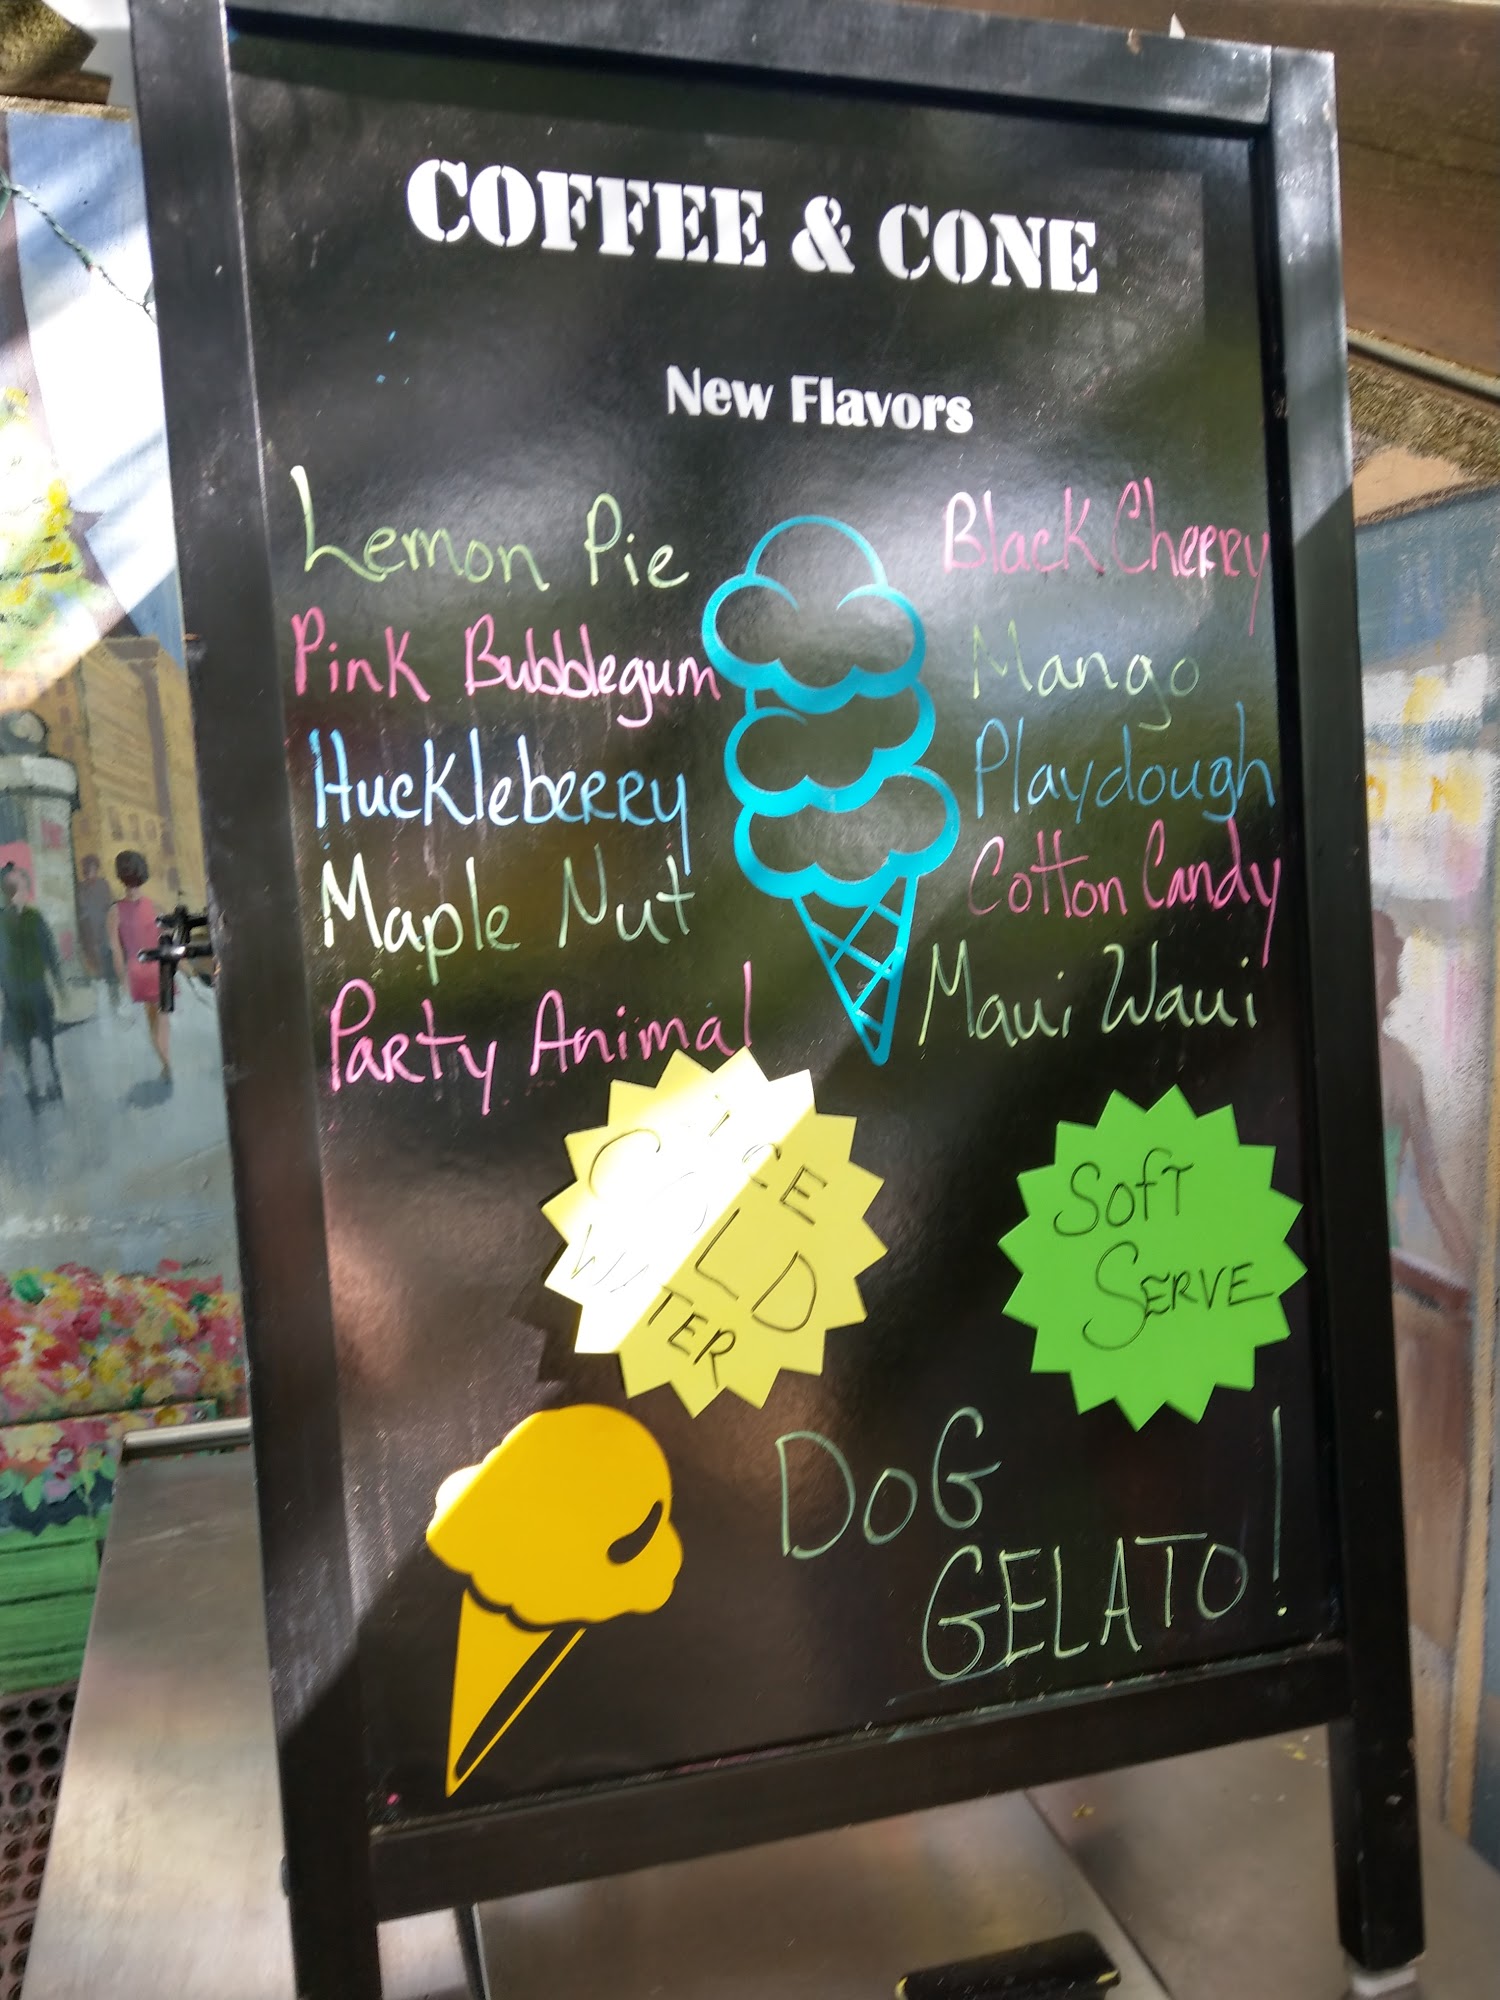 COFFEE & CONE
New Flavors
Lemon Pie
Pink Bubblegum
Huckleberry
Maple Nut
Party Animal
Black Cherry
Mango
Playdough
Cotton Candy
Maui Waui
ICE
COLD
WATER
SOFT
SERVE
DOG
GELATO!